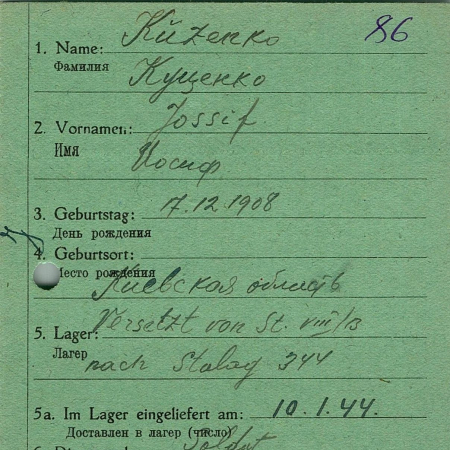 86
1. Name: Kuzenko
Фамилия Кущенко
2. Vornamen: Jossif
Имя Иосиф
3. Geburtstag: 17.12.1908
День рождения
4. Geburtsort:
Место рождения Киевская область
5. Lager: Versetzt von St. VIII/B
Лагер nach Stalag 344
5a. Im Lager eingeliefert am: 10.1.44.
Доставлен в лагер (число)
Soldat